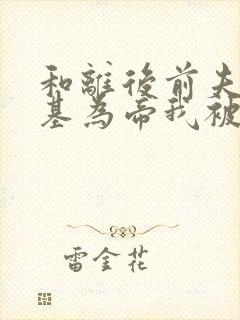 和離後前夫
基為帝我被
雷金花